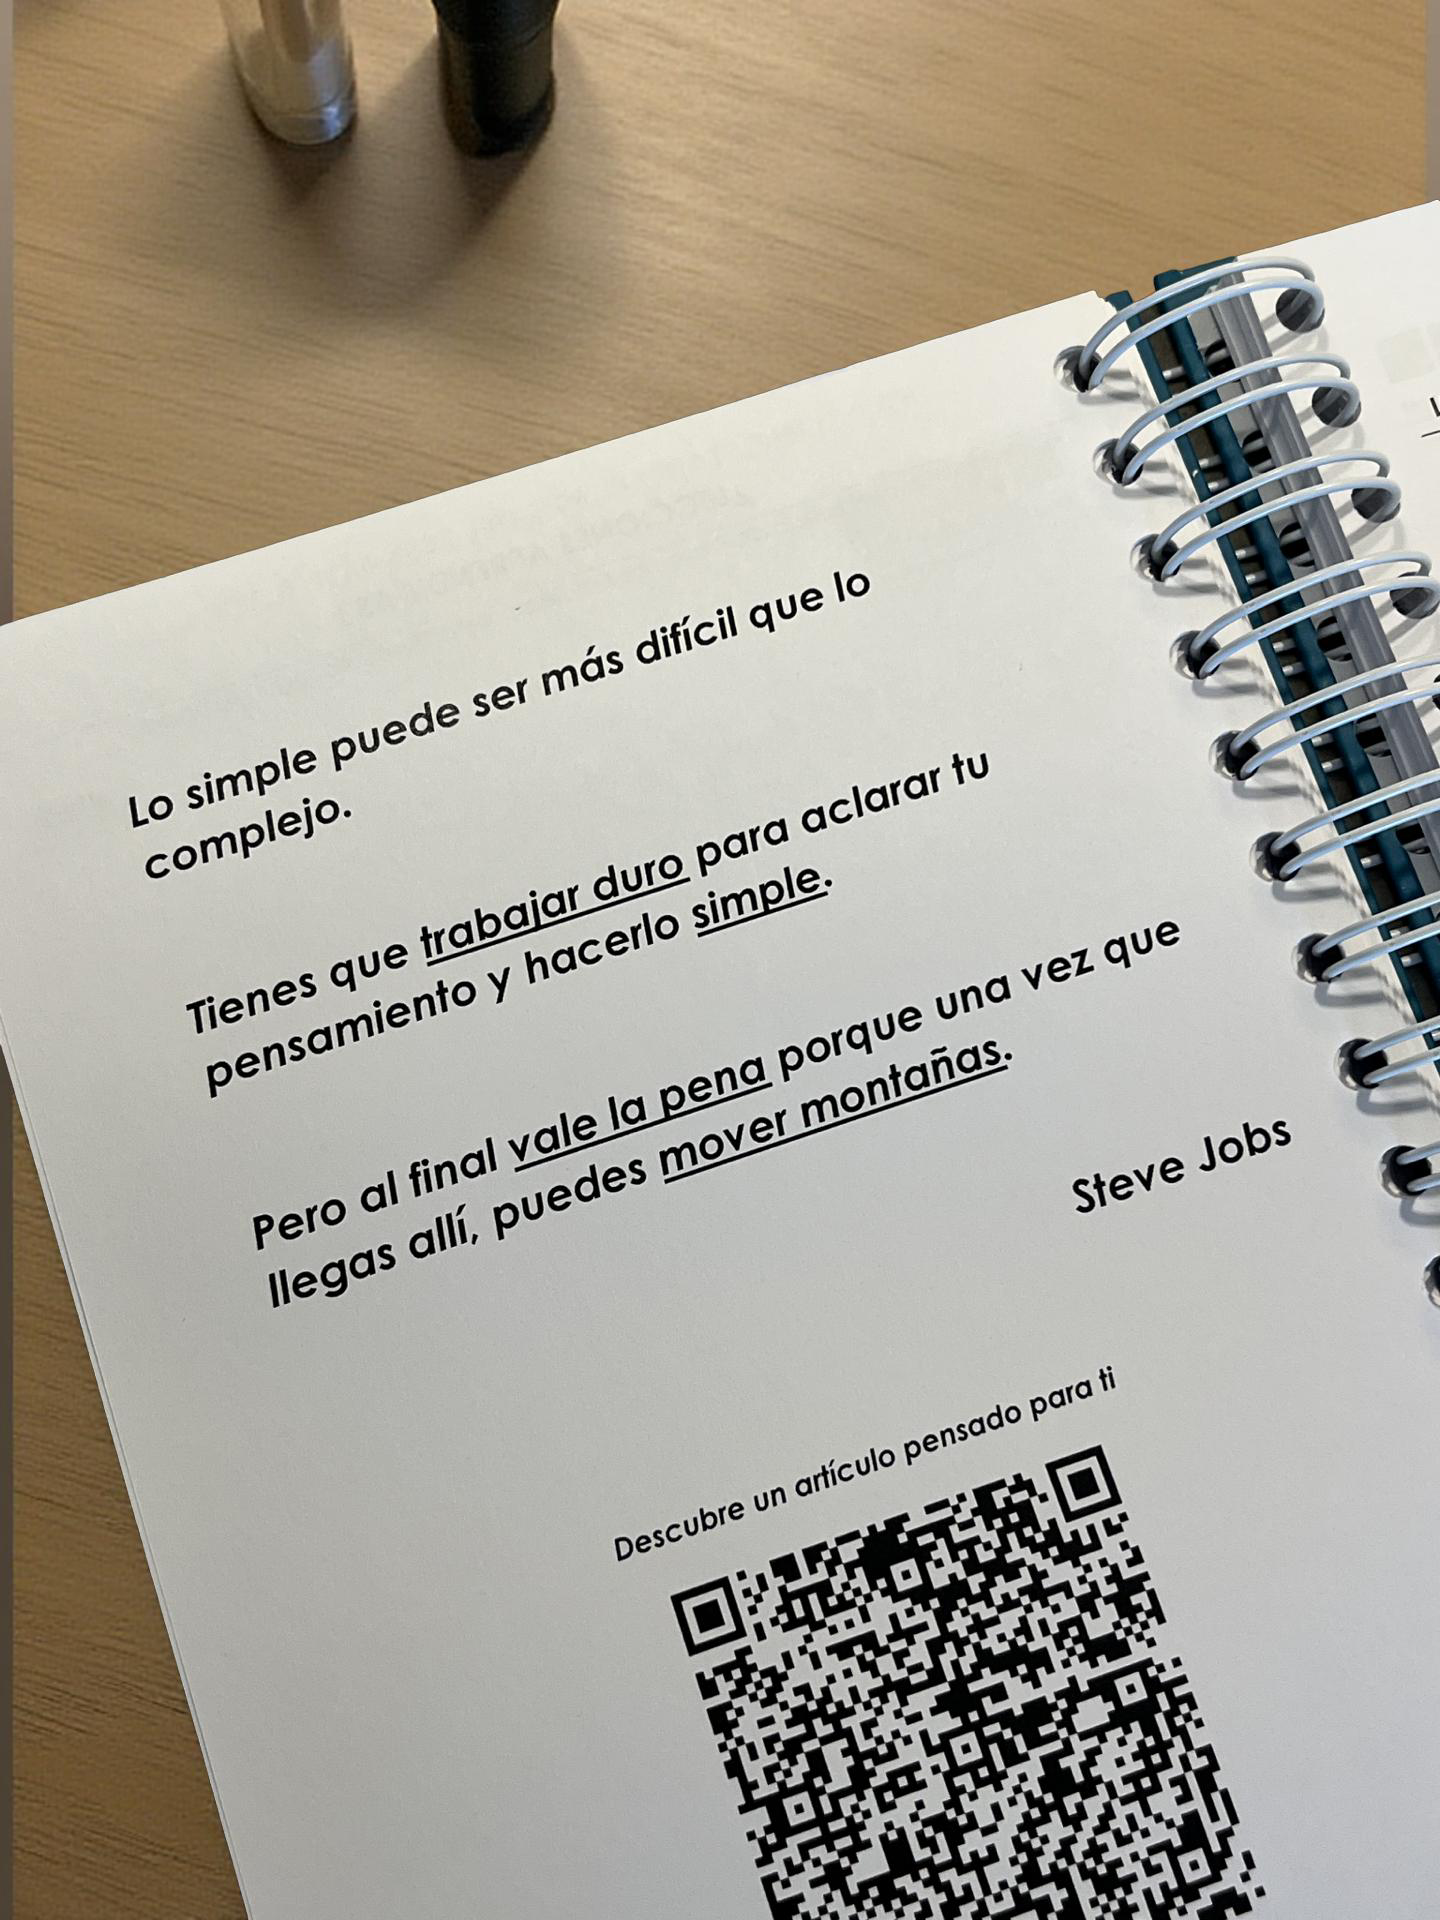 Lo simple puede ser más difícil que lo
complejo.
Tienes que trabajar duro para aclarar tu
pensamiento y hacerlo simple.
Pero al final vale la pena porque una vez que
llegas allí, puedes mover montañas.
Steve Jobs
Descubre un artículo pensado para ti